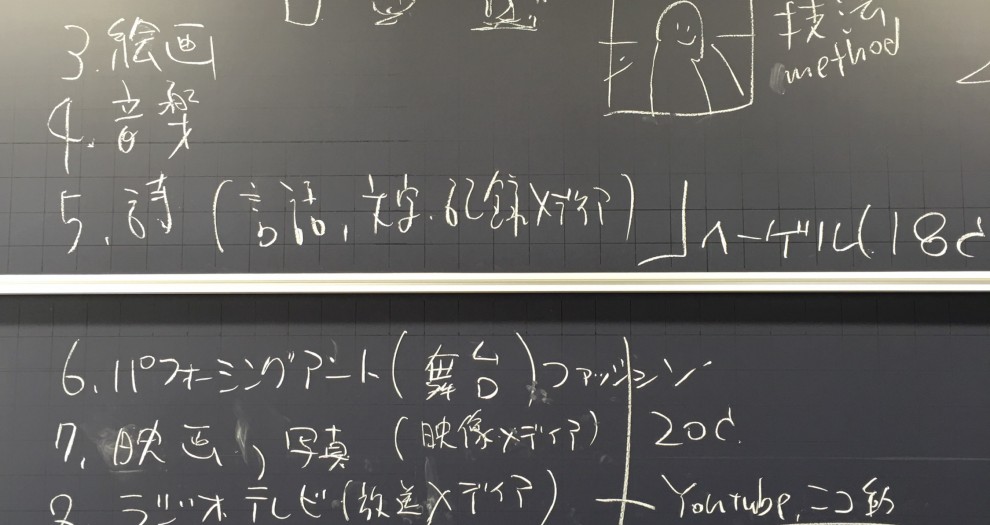 3.絵画
技法
method
4.音楽
5.詩(言語,文字.記録メディア)
ヘーゲル(18c
6.パフォーミングアート(舞台)ファッション
7.映画,写真(映像メディア)
20c.
8 ラジオテレビ(放送メディア)
Youtube,ニコ動